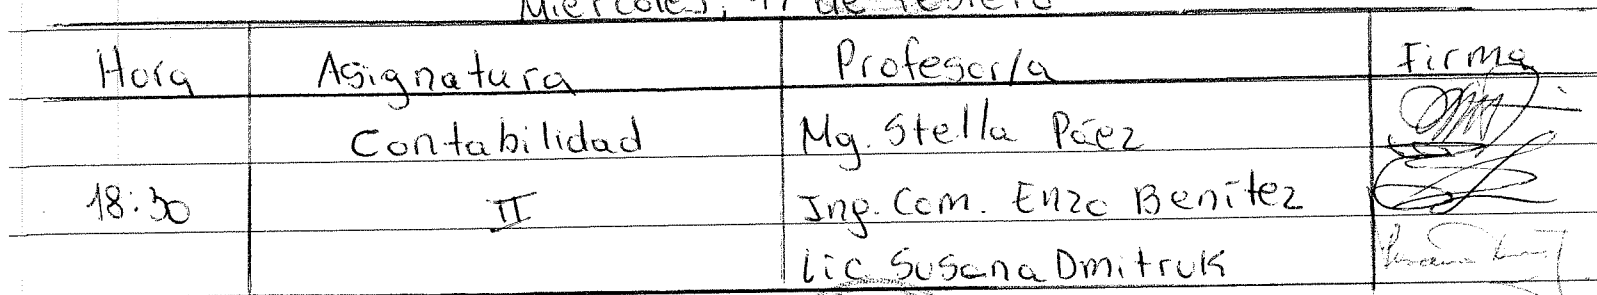 Miercoles, de febrero
Hora Asignatura Profesor/a Firma
Contabilidad Mg. Stella Páez
18:30 II Ing. Com. Enzo Benítez
Lic Susana Dmitruk